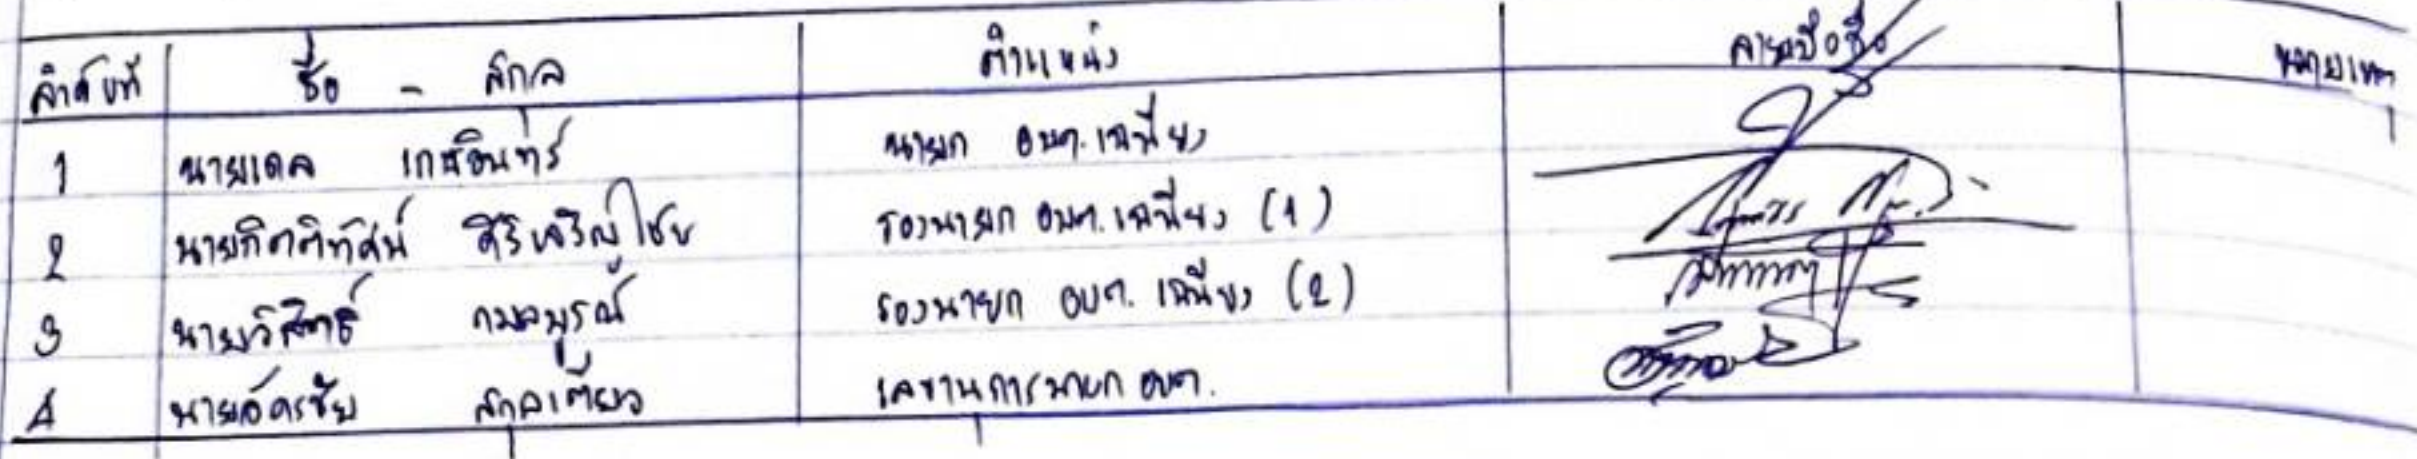 ลำดับที่ ชื่อ - สกุล ตำแหน่ง ลายมือชื่อ หมายเหตุ
1 นายเดล เกษอินทร์ นายก อบต.เฉนียง
2 นายกิตติทัศน์ ศิริเจริญไชย รองนายก อบต.เฉนียง (1)
3 นายวิสิทธิ์ กมลบูรณ์ รองนายก อบต. เฉนียง (2)
4 นายอัครชัย สกุลเตียว เลขานุการนายก อบต.